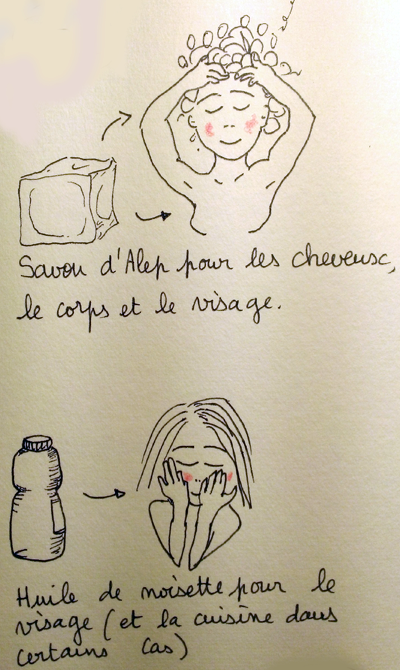 Savon d'Alep pour les cheveux,
le corps et le visage.
Huile de noisette pour le
visage (et la cuisine dans
certains cas)